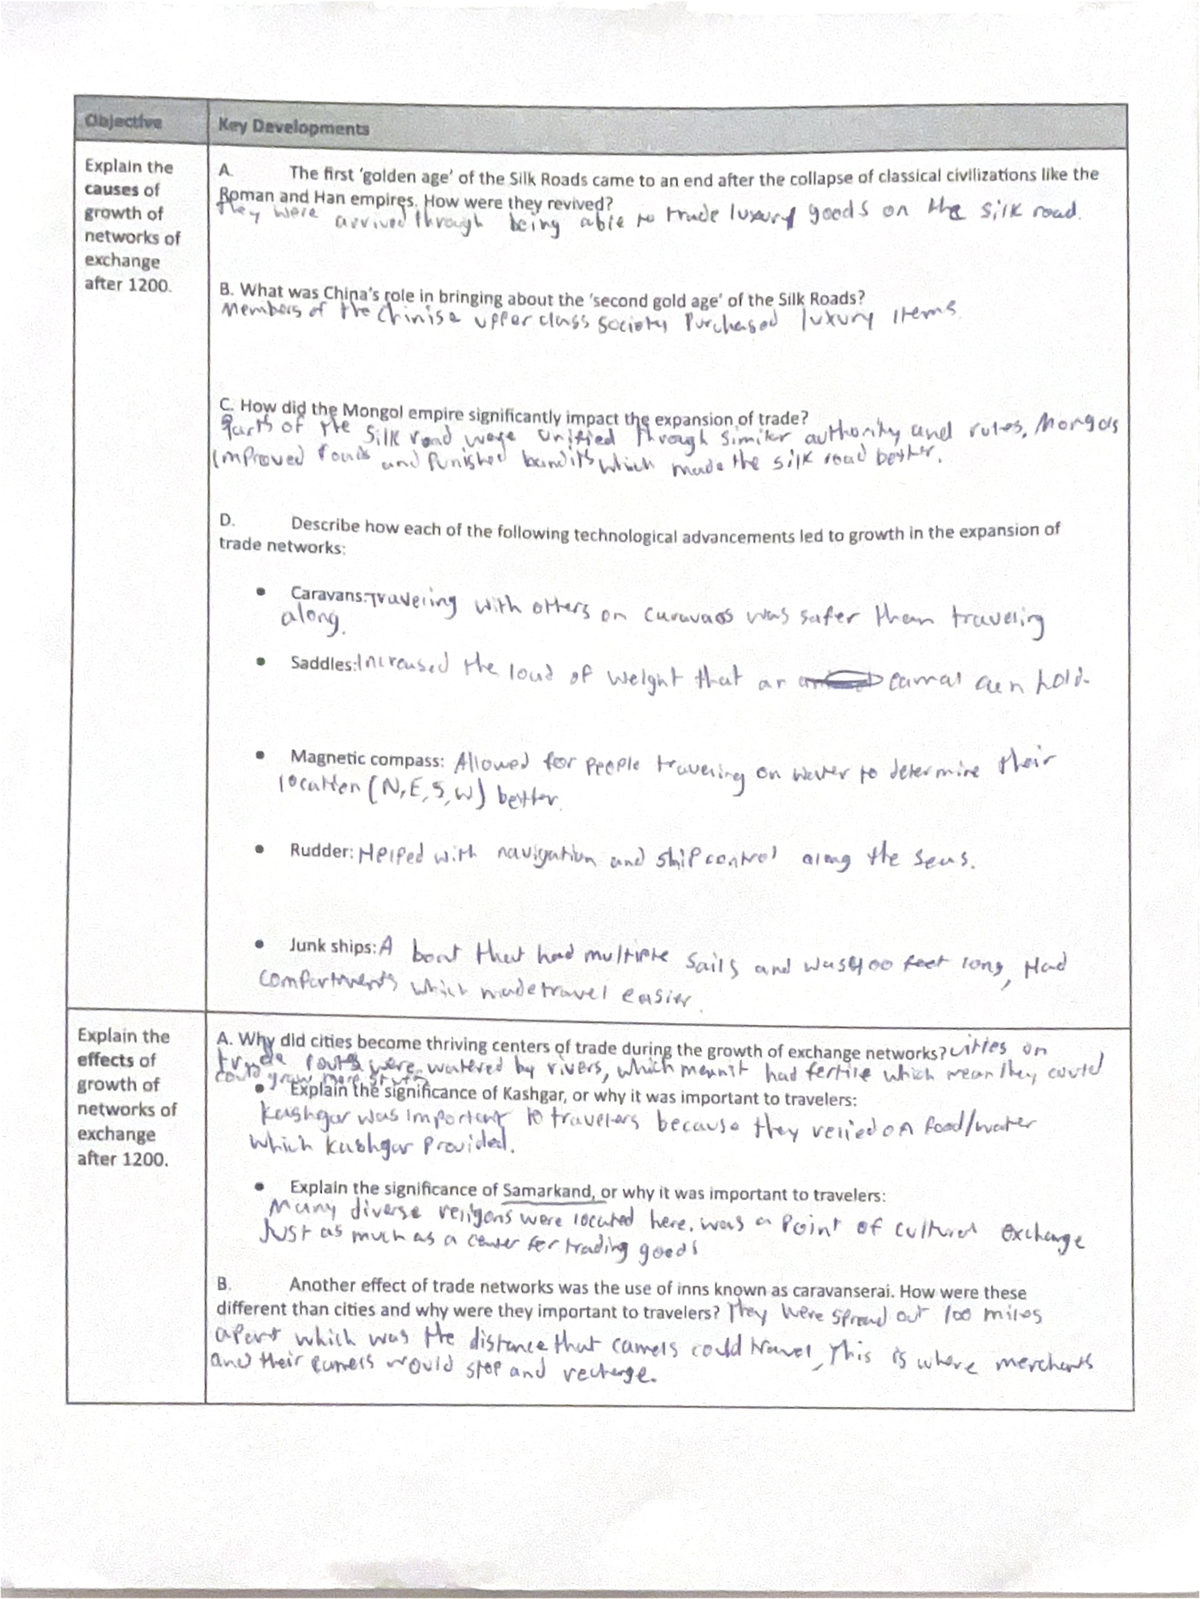 Objective
Key Developments
Explain the
causes of
growth of
networks of
exchange
after 1200.
A. The first 'golden age' of the Silk Roads came to an end after the collapse of classical civilizations like the
Roman and Han empires. How were they revived?
They were arrived through being able to trade luxury goods on the silk road.
B. What was China's role in bringing about the 'second gold age' of the Silk Roads?
Members of the Chinise upper class society Purchased luxury items.
C. How did the Mongol empire significantly impact the expansion of trade?
Parts of the silk road were unified through similar authority and rules, Mongols
improved roads and punished bandits which made the silk road better.
D. Describe how each of the following technological advancements led to growth in the expansion of
trade networks:
• Caravans: Traveling with others on caravans was safer than traveling
along.
• Saddles: Increased the load of weight that an camal can hold.
• Magnetic compass: Allowed for people traveling on water to determine their
location (N, E, S, W) better.
• Rudder: Helped with navigation and ship control along the seas.
• Junk ships: A boat that had multiple sails and was 400 feet long, Had
compartments which made travel easier.
Explain the
effects of
growth of
networks of
exchange
after 1200.
A. Why did cities become thriving centers of trade during the growth of exchange networks? Cities on
trade routes were watered by rivers, which meant had fertile which mean they could
could grow more
• Explain the significance of Kashgar, or why it was important to travelers:
Kashgar was important to travelers because they relied on food/water
which Kashgar Provided.
• Explain the significance of Samarkand, or why it was important to travelers:
Many diverse religons were located here. was a Point of cultural exchange
Just as much as a center for trading goods
B. Another effect of trade networks was the use of inns known as caravanserai. How were these
different than cities and why were they important to travelers? They were spread out 100 miles
apart which was the distance that camels could travel, This is where merchants
and their camels would stop and recharge.